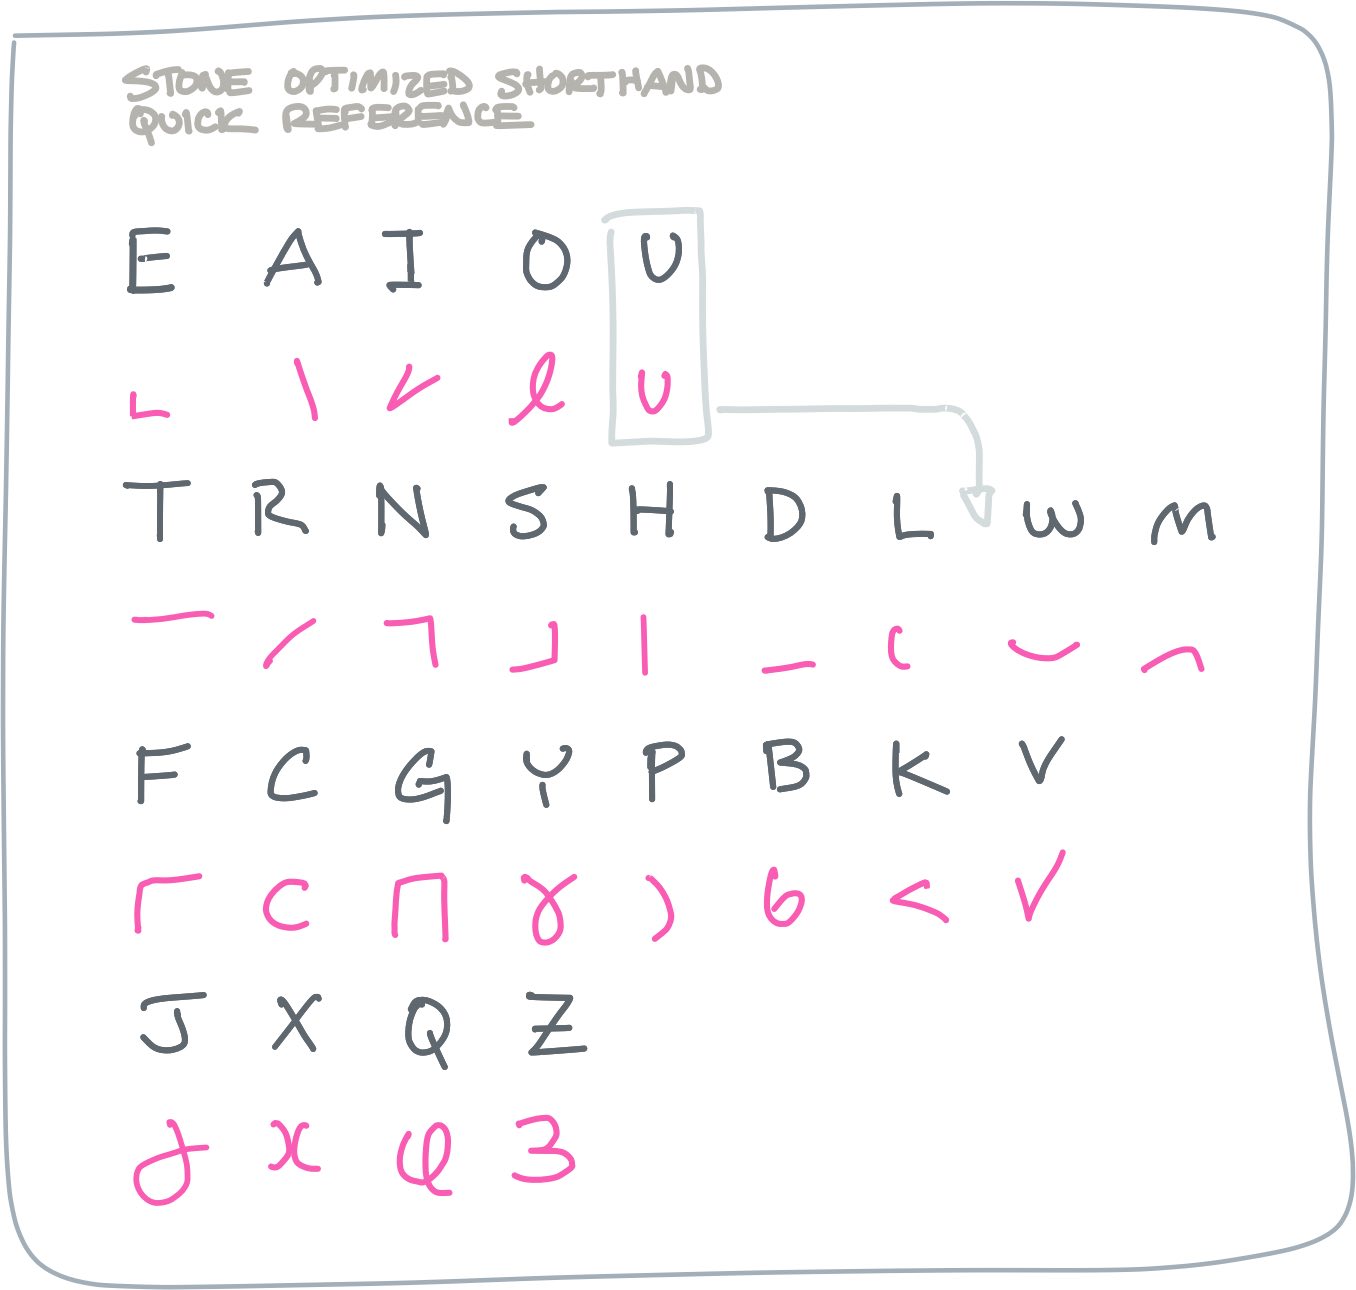 STONE OPTIMIZED SHORTHAND
QUICK REFERENCE
E A I O U
T R N S H D L W M
F C G Y P B K V
J X Q Z